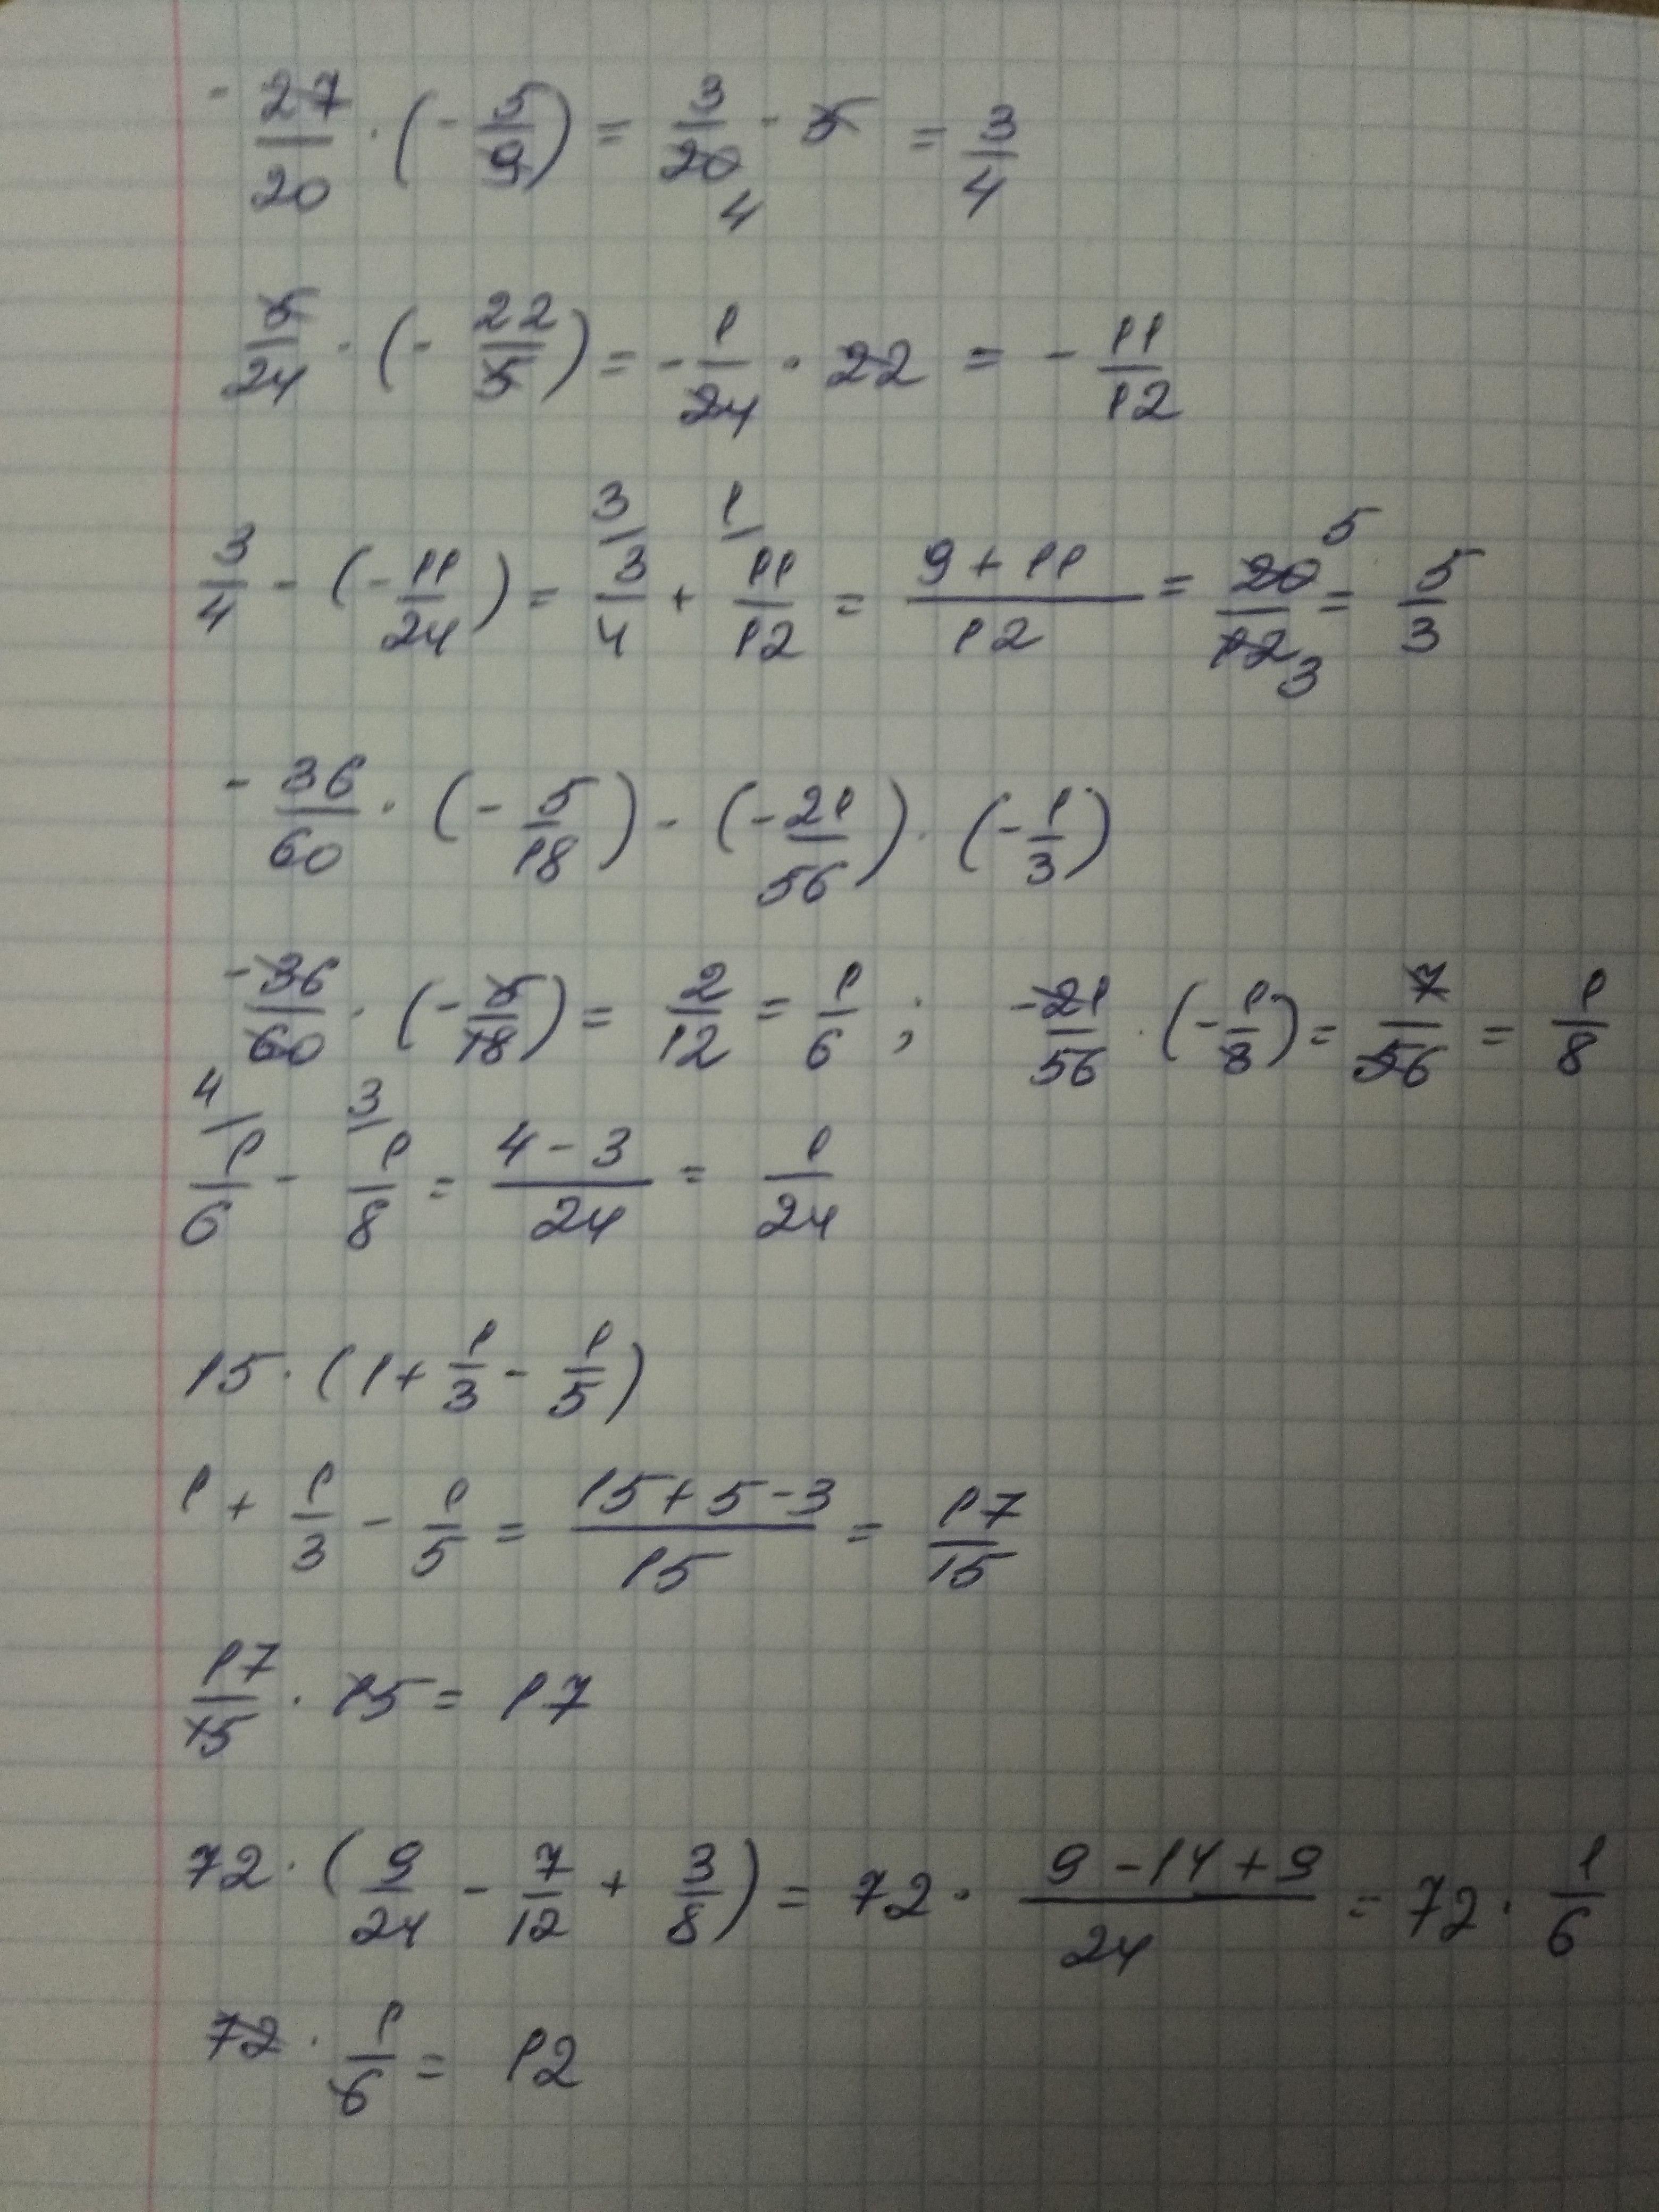 - 27/20 · (- 5/9) = 3/20 4 · 5 = 3/4
5/24 · (- 22/5) = - 1/24 · 22 = - 11/12
3/4 - (- 11/24) = 3/ 3/4 + 1/ 11/12 = (9 + 11)/12 = 20 5/12 3 = 5/3
- 36/60 · (- 5/18) - (- 21/56) · (- 1/3)
- 36/60 · (- 5/18) = 2/12 = 1/6 ; - 21/56 · (- 1/3) = 7/56 = 1/8
4/ 1/6 - 3/ 1/8 = (4 - 3)/24 = 1/24
15 · (1 + 1/3 - 1/5)
1 + 1/3 - 1/5 = (15 + 5 - 3)/15 = 17/15
17/15 · 15 = 17
72 · (9/24 - 7/12 + 3/8) = 72 · (9 - 14 + 9)/24 = 72 · 1/6
72 · 1/6 = 12